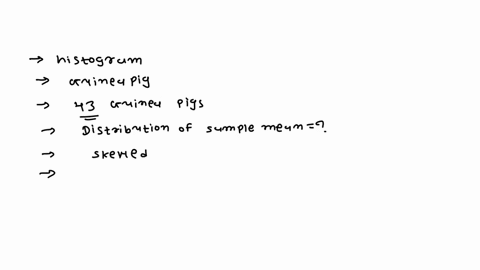 → histogram
→ Guinea pig
→ 43 Guinea pigs
→ Distribution of sample mean=?
→ skewed
→